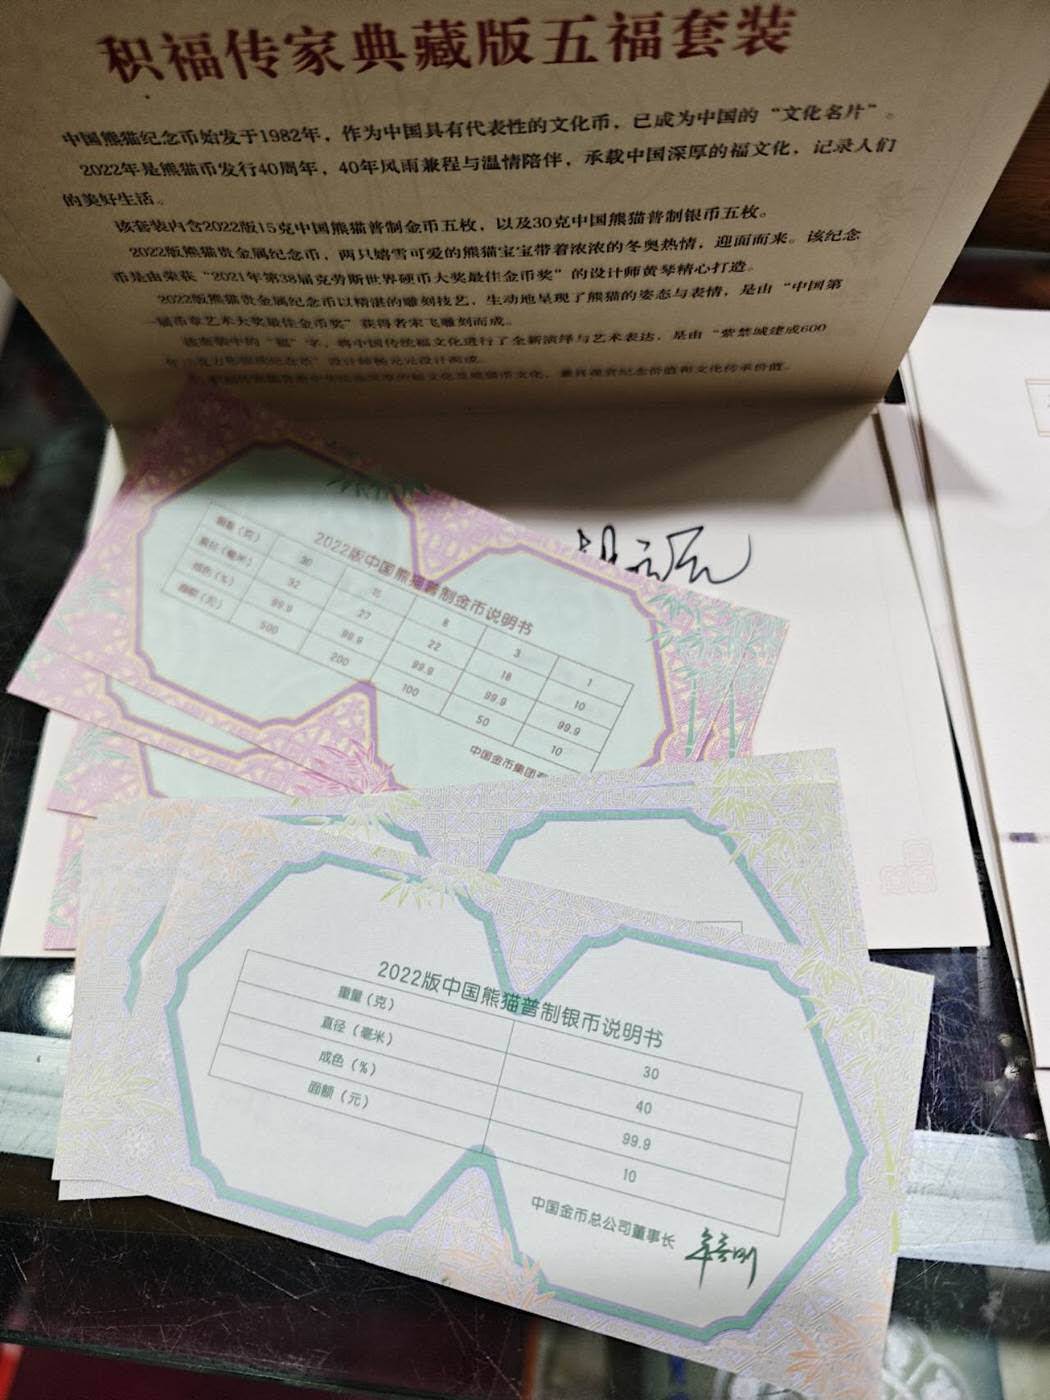 积福传家典藏版五福套装
中国熊猫纪念币始发于1982年，作为中国具有代表性的文化币，已成为中国的“文化名片”。
2022年是熊猫币发行40周年，40年风雨兼程与温情陪伴，承载中国深厚的福文化，记录人们
的美好生活。
该套装内含2022版15克中国熊猫普制金币五枚，以及30克中国熊猫普制银币五枚。
2022版熊猫贵金属纪念币，两只嬉雪可爱的熊猫宝宝带着浓浓的冬奥热情，迎面而来。该纪念
币是由荣获“2021年第38届克劳斯世界硬币大奖最佳金币奖”的设计师黄琴精心打造。
2022版熊猫贵金属纪念币以精湛的雕刻技艺，生动地呈现了熊猫的姿态与表情，是由“中国第
一届币章艺术大奖最佳金币奖”获得者宋飞雕刻而成。
该套装中的“福”字，将中国传统福文化进行了全新演绎与艺术表达，是由“紫禁城建成600
2022版中国熊猫普制金币说明书
重量（克） 30 15 8 3 1
直径（毫米） 32 27 22 18 10
成色（%） 99.9 99.9 99.9 99.9 99.9
面额（元） 500 200 100 50 10
中国金币集团有
2022版中国熊猫普制银币说明书
重量（克） 30
直径（毫米） 40
成色（%） 99.9
面额（元） 10
中国金币总公司董事长